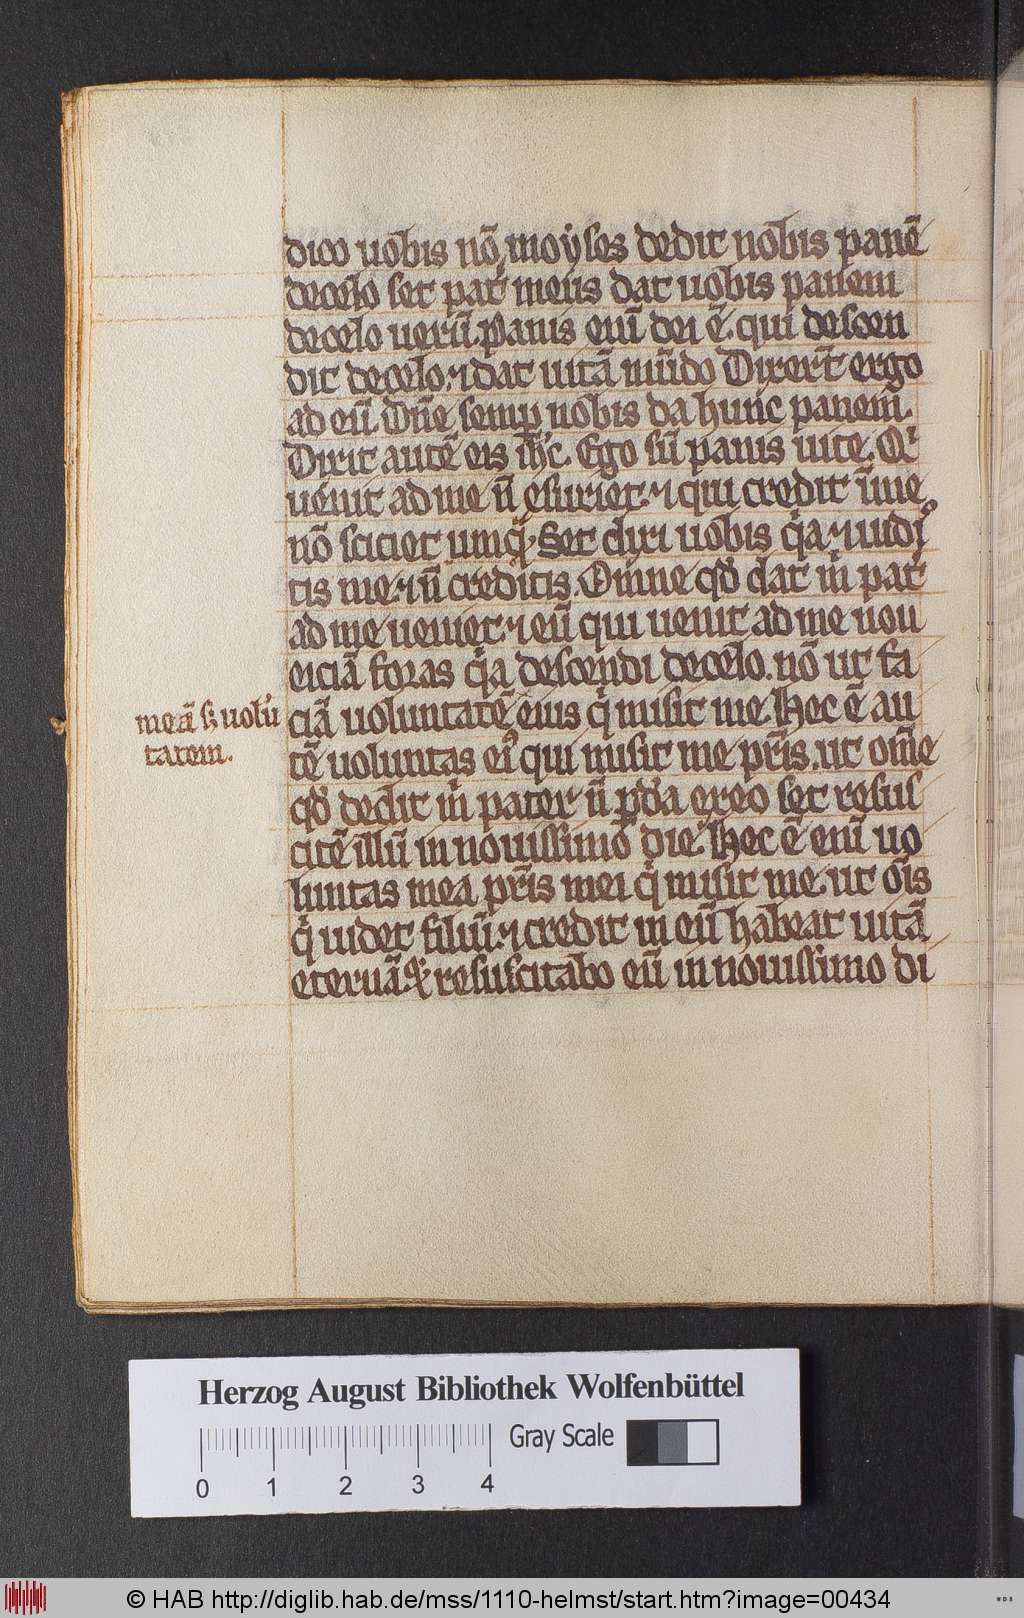 dico uobis nō moyses dedit uobis panē
decelo set pat̄ meus dat uobis panem
decelo uerū. Panis eni᷑ dei ē. qui descen
dit decelo. ⁊ dat uitā mūdo Dixert̄ ergo
ad eū. Dn̄e semꝑ nobis da hunc panem.
Dixit autē eis ih̄c. Ego sū panis uite. Qͥ
uenit ad me n̄ esuriet. ⁊ qui credit ī me
nō sciciet umqͣ. Set dixi uobis qͥa. ⁊ uidi
tis me. ⁊ n̄ creditis. Omne qd̄ dat m̄ pat̄
ad me ueniet. ⁊ eū qui uenit ad me non
eiciā foras qͥa descendi decelo. nō ut fa
ciā uoluntatē eius qͥ misit me. Hec ē au
meā sꝫ uolū
tatem.
tē uoluntas eiꝰ qui misit me pr̄is. ut om̄e
qd̄ dedit m̄ pater n̄ ꝑdā ex eo set resus
citē illū in nouissimo die. Hec ē eni᷑ uo
luntas mea pr̄is mei qͥ misit me. ut oīs
qͥ uidet filiū. ⁊ credit in eū habeat uitā
eternā. ⁊ resuscitabo eū in nouissimo di
Herzog August Bibliothek Wolfenbüttel
Gray Scale
0 1 2 3 4
© HAB http://diglib.hab.de/mss/1110-helmst/start.htm?image=00434